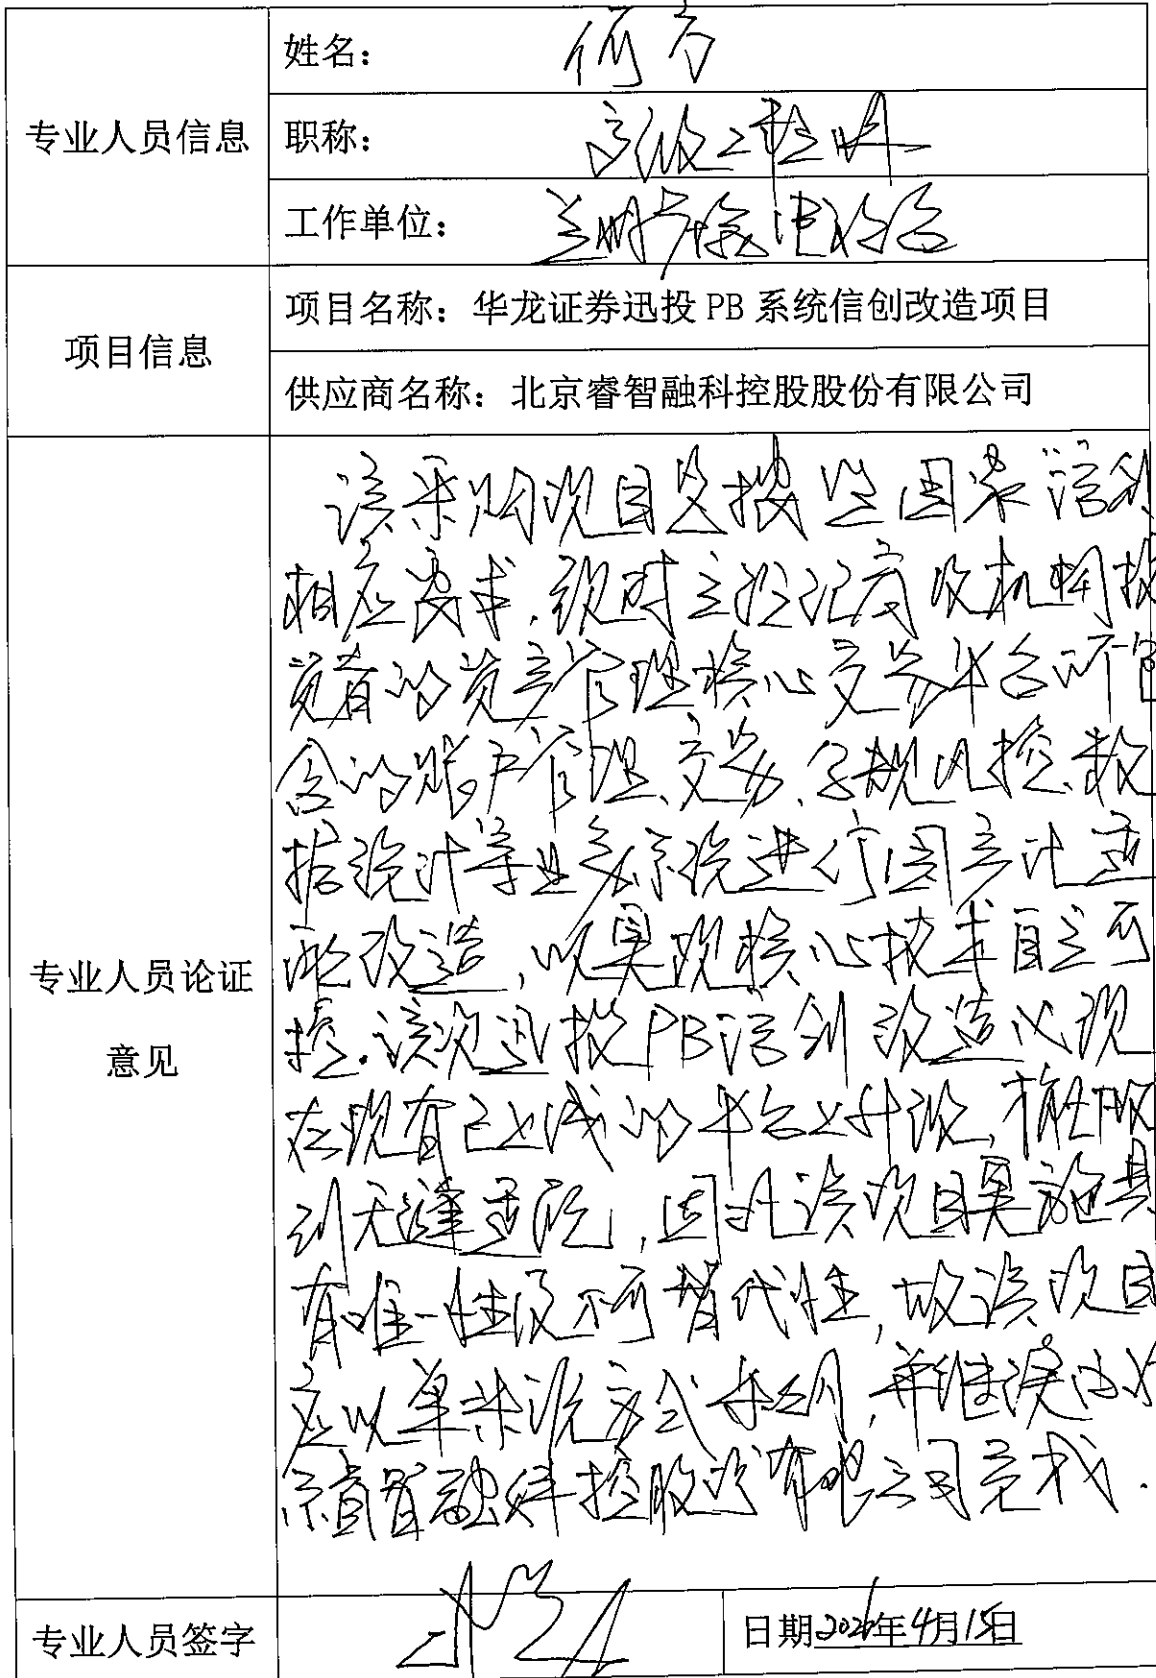 专业人员信息
姓名：何方
职称：高级工程师
工作单位：兰州广播电视台
项目信息
项目名称：华龙证券迅投 PB 系统信创改造项目
供应商名称：北京睿智融科控股股份有限公司
专业人员论证
意见
该采购项目是按照国家信创
相应要求，现对主经纪商及机构投
资者的资产管理核心交易平台所包
含的账户管理、交易、合规风控、数
据统计等业务系统进行国产化适
配改造，以实现核心技术自主可
控。该次迅投PB信创改造必须
在现有已上线的平台上升级，才能做
到无缝适配，因此该项目实施具
有唯一性及不可替代性，故该项目
应以单一来源方式采购，并继续由北
京睿智融科控股股份有限公司完成.
专业人员签字
日期2026年4月15日